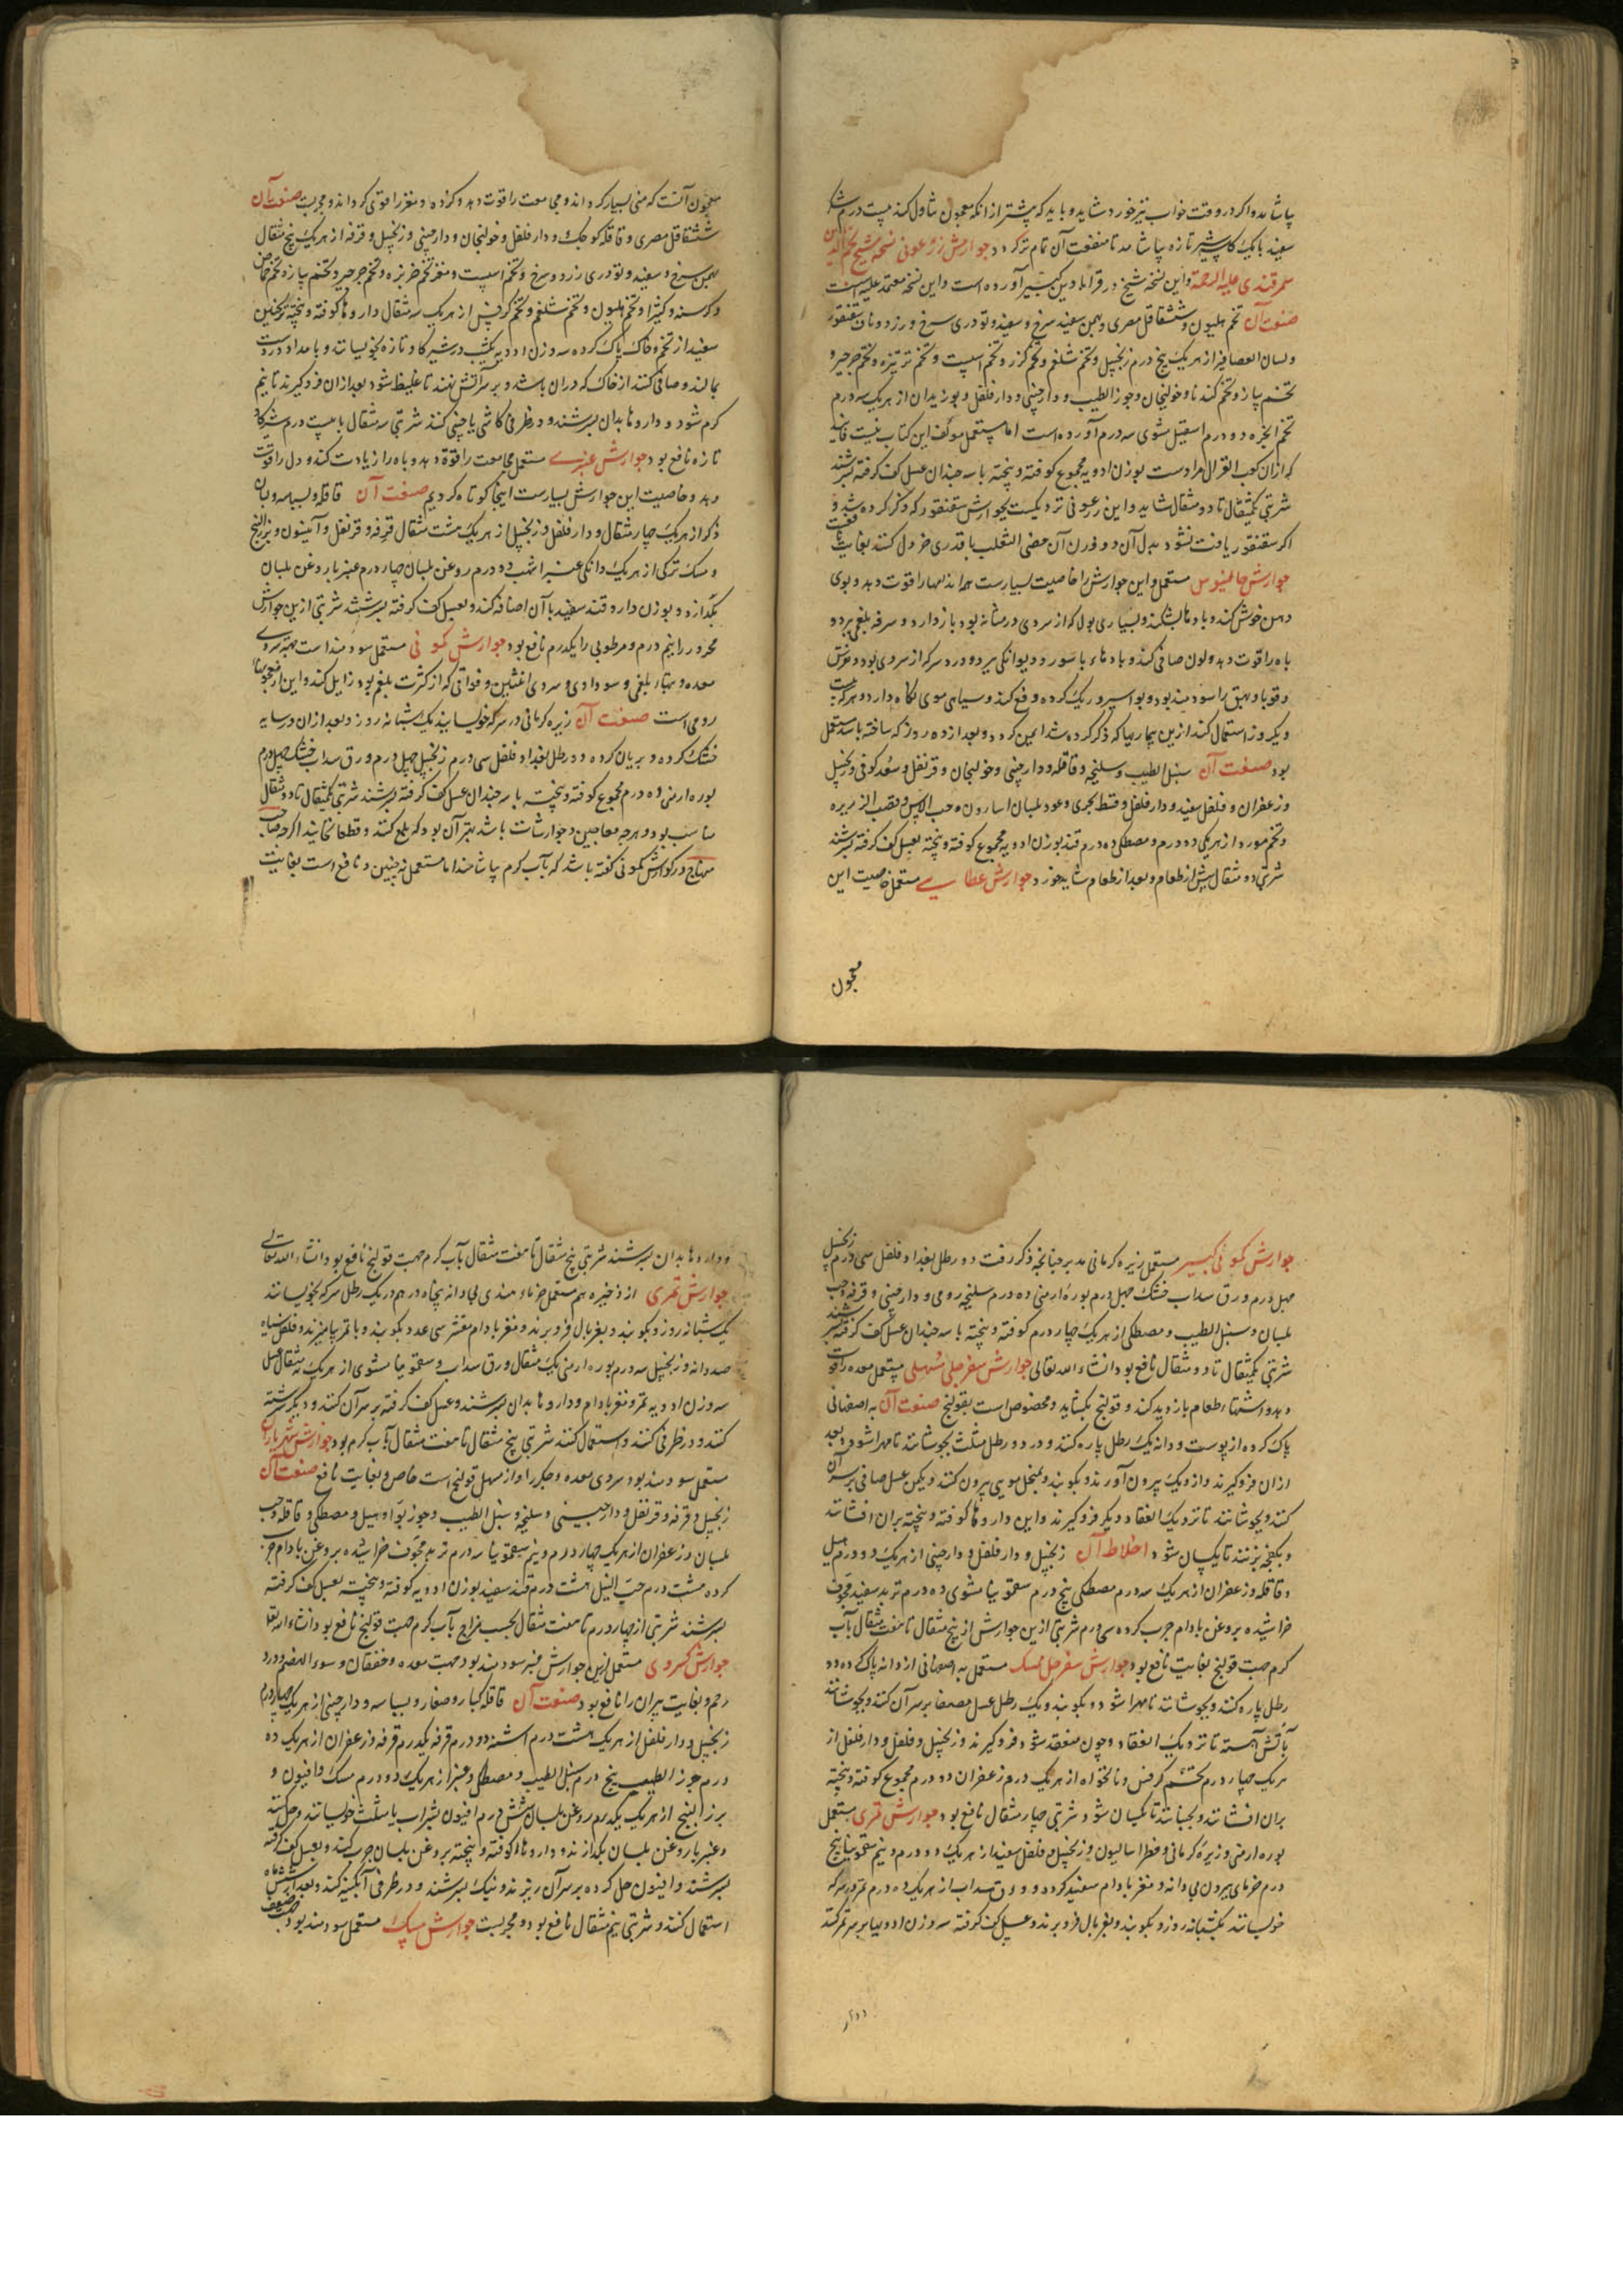 بیاشامد و اگر در وقت خواب نیز خورد شاید و باید که پیشتر از آنکه معجون تناول کند بیست درم شکر
سفید با یک کاسه شیر تازه بیاشامد تا منفعت آن تمام تر گردد جوارش زرعونی نسخه شیخ نجم الدین
سمرقندی علیه الرحمة و این نسخه شیخ در قرابادین کبیر آورده است و این نسخه معتمد علیه است
صنعت آن تخم هلیون و شقاقل مصری و بهمن سفید سرخ و سفید و تودری سرخ و زرد و ناف سقنقور
و لسان العصافیر از هر یک پنج درم زنجبیل و تخم شلغم و تخم گزر و تخم اسپست و تخم ترتیزه و تخم جرجیر و
تخم پیاز و تخم گندنا و خولنجان و جوز الطیب و دارچینی و دار فلفل و بوزیدان از هر یک سه درم
تخم انجره دو درم اسقیل مشوی سه درم آورده است اما مستعمل مولف این کتاب نیست فانید
که از ان کعب الغزال مرادست بوزن ادویه مجموع کوفته و پخته با سه چندان عسل کف گرفته بسرشند
شربتی یکمثقال تا دو مثقال شاید و این زرعونی نزدیکست بجوارش سقنقور که ذکر کرده شد و
اگر سقنقور یافت نشود بدل آن دو وزن آن خصی الثعلب با قدری خردل کنند بغایت نافعست
جوارش جالینوس مستعمل و این جوارش را خاصیت بسیارست همه اندامها را قوت دهد و بوی
دهن خوش کند و بادها بشکند و بسیاری بول که از سردی در مثانه بود باز دارد و سرفه بلغمی ببرد و
باه را قوت دهد و لون صافی کند و بادهاء باسور و دیوانگی ببرد و درد سر که از سردی بود و نقرس
و قوبا و بهق را سودمند بود و بواسیر و ریگ گرده دفع کند و سیاهی موی نگاه دارد و هرکه بیست
و یکروز استعمال کند ازین بیماریها که ذکر کرده شد ایمن گردد و بعد از ده روز که ساخته باشد مستعمل
بود صنعت آن سنبل الطیب و سلیخه و قاقله و دارچینی و خولنجان و قرنفل و سعد کوفی و زنجبیل
و زعفران و فلفل سفید و دار فلفل و قسط بحری و عود بلسان اسارون و حب الاس و قصب الزریره
و تخم مورد از هر یکی ده درم و مصطکی ده درم قند بوزن ادویه مجموع کوفته و پخته بعسل کف گرفته بسرشند
شربتی دو مثقال پیش از طعام و بعد از طعام شاید خورد جوارش عطایی مستعمل خاصیت این
معجون
معجون آنست که منی بسیار گرداند و مجامعت را قوت دهد و گرده و مغز را قوی گرداند و مجربست صنعت آن
شقاقل مصری و قاقله کوچک و دار فلفل و خولنجان و دارچینی و زنجبیل و قرفه از هر یک پنج مثقال
بهمن سرخ و سفید و تودری زرد و سرخ و تخم اسپست و مغز تخم خربزه و تخم جرجیر و تخم پیاز و تخم خاص
و کرسنه و کتیرا و تخم هلیون و تخم شلغم و تخم کرفس از هر یک سه مثقال داروها کوفته و پخته ترنجبین
سفید از تخم و خاک پاک کرده سه وزن ادویه یکشب در شیر گاو تازه بخویسانند و بامداد در دست
بمالند و صافی کنند از خاک که در ان باشد و بر سر آتش نهند تا غلیظ شود بعد از ان فرو گیرند تا نیم
گرم شود و داروها بدان بسرشند و در ظرفی کاشی یا چینی کنند شربتی سه مثقال با بیست درم شیر گاو
تازه نافع بود جوارش عنبری مستعمل مجامعت را قوة دهد و باه را زیادت کند و دل را قوت
دهد و خاصیت این جوارش بسیارست اینجا کوتاه کردیم صنعت آن قاقله و بسباسه و بان
ذکر از هر یک چهار مثقال و دار فلفل و زنجبیل از هر یک هشت مثقال قرفه و قرنفل و انیسون و بزر البنج
و مسک ترکی از هر یک دانگی عنبر اشهب دو درم روغن بلسان چهار درم عنبر با روغن بلسان
بگدازد و بوزن دارو قند سفید با آن اضافه کند و بعسل کف گرفته بسرشند شربتی ازین جوارش
محرور را نیم درم و مرطوبی را یکدرم نافع بود جوارش کمونی مستعمل سودمند است جهت سردی
معده و تبهاء بلغمی و سوداوی و سردی انثیین و فواقی که از کثرت بلغم بود زایل کند و این از معجونهاء
رومی است صنعت آن زیره کرمانی در سرکه خویسانیده یک شبانه روز و بعد از ان در سایه
خشک کرده و بریان کرده دو رطل بغداد فلفل سی درم زنجبیل چهل درم ورق سداب خشک چهل درم
بوره ارمنی ده درم مجموع کوفته و پخته با سه چندان عسل کف گرفته بسرشند شربتی یکمثقال تا دو مثقال
مناسب بود و هرچه معاجین و جوارشات باشد بهتر آن بود که بلع کنند و قطعا نخایند اگرچه صاحب
منهاج در گوارش کمونی گفته باشد که بآب گرم بیاشامند اما مستعمل نه چنین و نافع است بغایت
جوارش کمونی کبیر مستعمل زیره کرمانی مدبر چنانچه ذکر رفت دو رطل بغداد فلفل سی درم زنجبیل
چهل درم ورق سداب خشک چهل درم بوره ارمنی ده درم سلیخه رومی و دارچینی و قرفه و حب
بلسان و سنبل الطیب و مصطکی از هر یک چهار درم کوفته و پخته با سه چندان عسل کف گرفته بسرشند
شربتی یکمثقال تا دو مثقال نافع بود انشاء الله تعالی جوارش سفرجلی مسهلی مستعمل معده را قوت
دهد و اشتهاء طعام بازدید کند و قولنج بگشاید و مخصوص است بقولنج صنعت آن به اصفهانی
پاک کرده از پوست و دانه یک رطل پاره کنند و در دو رطل مثلث بجوشانند تا مهرا شود و بعد
از ان فرو گیرند و از دیگ بیرون آورند و بکوبند و بمنخل مویی بیرون کنند و یکمن عسل صافی بر سر آن
کنند و بجوشانند تا نزدیک انعقاد دیگر فرو گیرند و این داروها کوفته و پخته بران افشانند
و بکفچه بزنند تا یکسان شود اخلاط آن زنجبیل و دار فلفل و دارچینی از هر یک دو درم هیل
و قاقله و زعفران از هر یک سه درم مصطکی پنج درم سقمونیا مشوی ده درم تربد سفید مجوف
خراشیده بروغن بادام چرب کرده سی درم شربتی ازین جوارش از پنج مثقال تا هفت مثقال بآب
گرم جهت قولنج بغایت نافع بود جوارش سفرجل ممسک مستعمل به اصفهانی از دانه پاک کرده دو
رطل پاره کنند و بجوشانند تا مهرا شود و بکوبند و یک رطل عسل مصفا بر سر آن کنند و بجوشانند
بآتش آهسته تا نزدیک انعقاد و چون منعقد شود فرو گیرند و زنجبیل و فلفل و دار فلفل از
هر یک چهار درم تخم کرفس و نانخواه از هر یک درم زعفران دو درم مجموع کوفته و پخته
بران افشانند و بجنبانند تا یکسان شود شربتی چهار مثقال نافع بود جوارش تمری مستعمل
بوره ارمنی و زیره کرمانی و فطراسالیون و زنجبیل و فلفل سفید از هر یک دو درم و نیم سقمونیا پنج
درم خرمای بیرون بی دانه و مغز بادام سفید کرده و ورق سداب از هر یک ده درم تمر در سرکه
خویسانند یکشبانه روز و بکوبند و بغربال فرو برند و عسل کف گرفته سه وزن ادویها بر سر تمر کنند
و دارو
و داروها بدان بسرشند شربتی پنج مثقال تا هفت مثقال بآب گرم جهت قولنج نافع بود انشاء الله تعالی
جوارش تمری از ذخیره هم مستعمل خرماء هندی بی دانه پنجاه درهم در یک رطل سرکه بخویسانند
یک شبانه روز و بکوبند و بغربال فرو برند و مغز بادام مقشر سی عدد بکوبند و با تمر بیامیزند و فلفل سیاه
صد دانه و زنجبیل سه درم بوره ارمنی یک مثقال ورق سداب و سقمونیا مشوی از هر یک سه مثقال عسل
سه وزن ادویه تمر و مغز بادام و داروها بدان بسرشند و عسل کف گرفته بر سر آن کنند و دیگر سرشته
کنند و در ظرفی کنند و استعمال کنند شربتی پنج مثقال تا هفت مثقال بآب گرم بود جوارش شهریاران
مستعمل سودمند بود سردی معده و جگر را و از مسهل قولنج است خاص و بغایت نافع صنعت آن
زنجبیل و قرفه و قرنفل و دارچینی و سلیخه و سنبل الطیب و جوز بوا و هیل و مصطکی و قاقله و حب
بلسان و زعفران از هر یک چهار درم و نیم سقمونیا سه درم تربد مجوف خراشیده بروغن بادام چرب
کرده هشت درم حب النیل هشت درم قند سفید بوزن ادویه کوفته و پخته بعسل کف گرفته
بسرشند شربتی از چهار درم تا هفت مثقال بحسب مزاج بآب گرم جهت قولنج نافع بود انشاء الله تعالی
جوارش خسروی مستعمل ازین جوارش عنبر سودمند بود جهت معده و خفقان و سوء الهضم و درد
رحم و بغایت پیران را نافع بود صنعت آن قاقله کبار و صغار و بسباسه و دارچینی از هر یک چهار درم
زنجبیل و دار فلفل از هر یک هشت درم اشنه دو درم قرفه یکدرم قرفه و زعفران از هر یک ده
درم جوز الطیب پنج درم سنبل الطیب و مصطکی و عنبر از هر یک دو درم مسک و افیون و
بزر البنج از هر یک یکدرم روغن بلسان شش درم افیون بشراب یا مثلث خویسانند و حل کنند
و عنبر با روغن بلسان بگدازند و داروها کوفته و پخته بروغن بلسان چرب کنند و بعسل کف گرفته
بسرشند و افیون حل کرده بر سر آن ریزند و نیک بسرشند و در ظرفی آبگینه کنند و بعد از شش ماه
استعمال کنند و شربتی نیم مثقال نافع بود و مجربست جوارش مسک مستعمل سودمند بود جهت ضعف